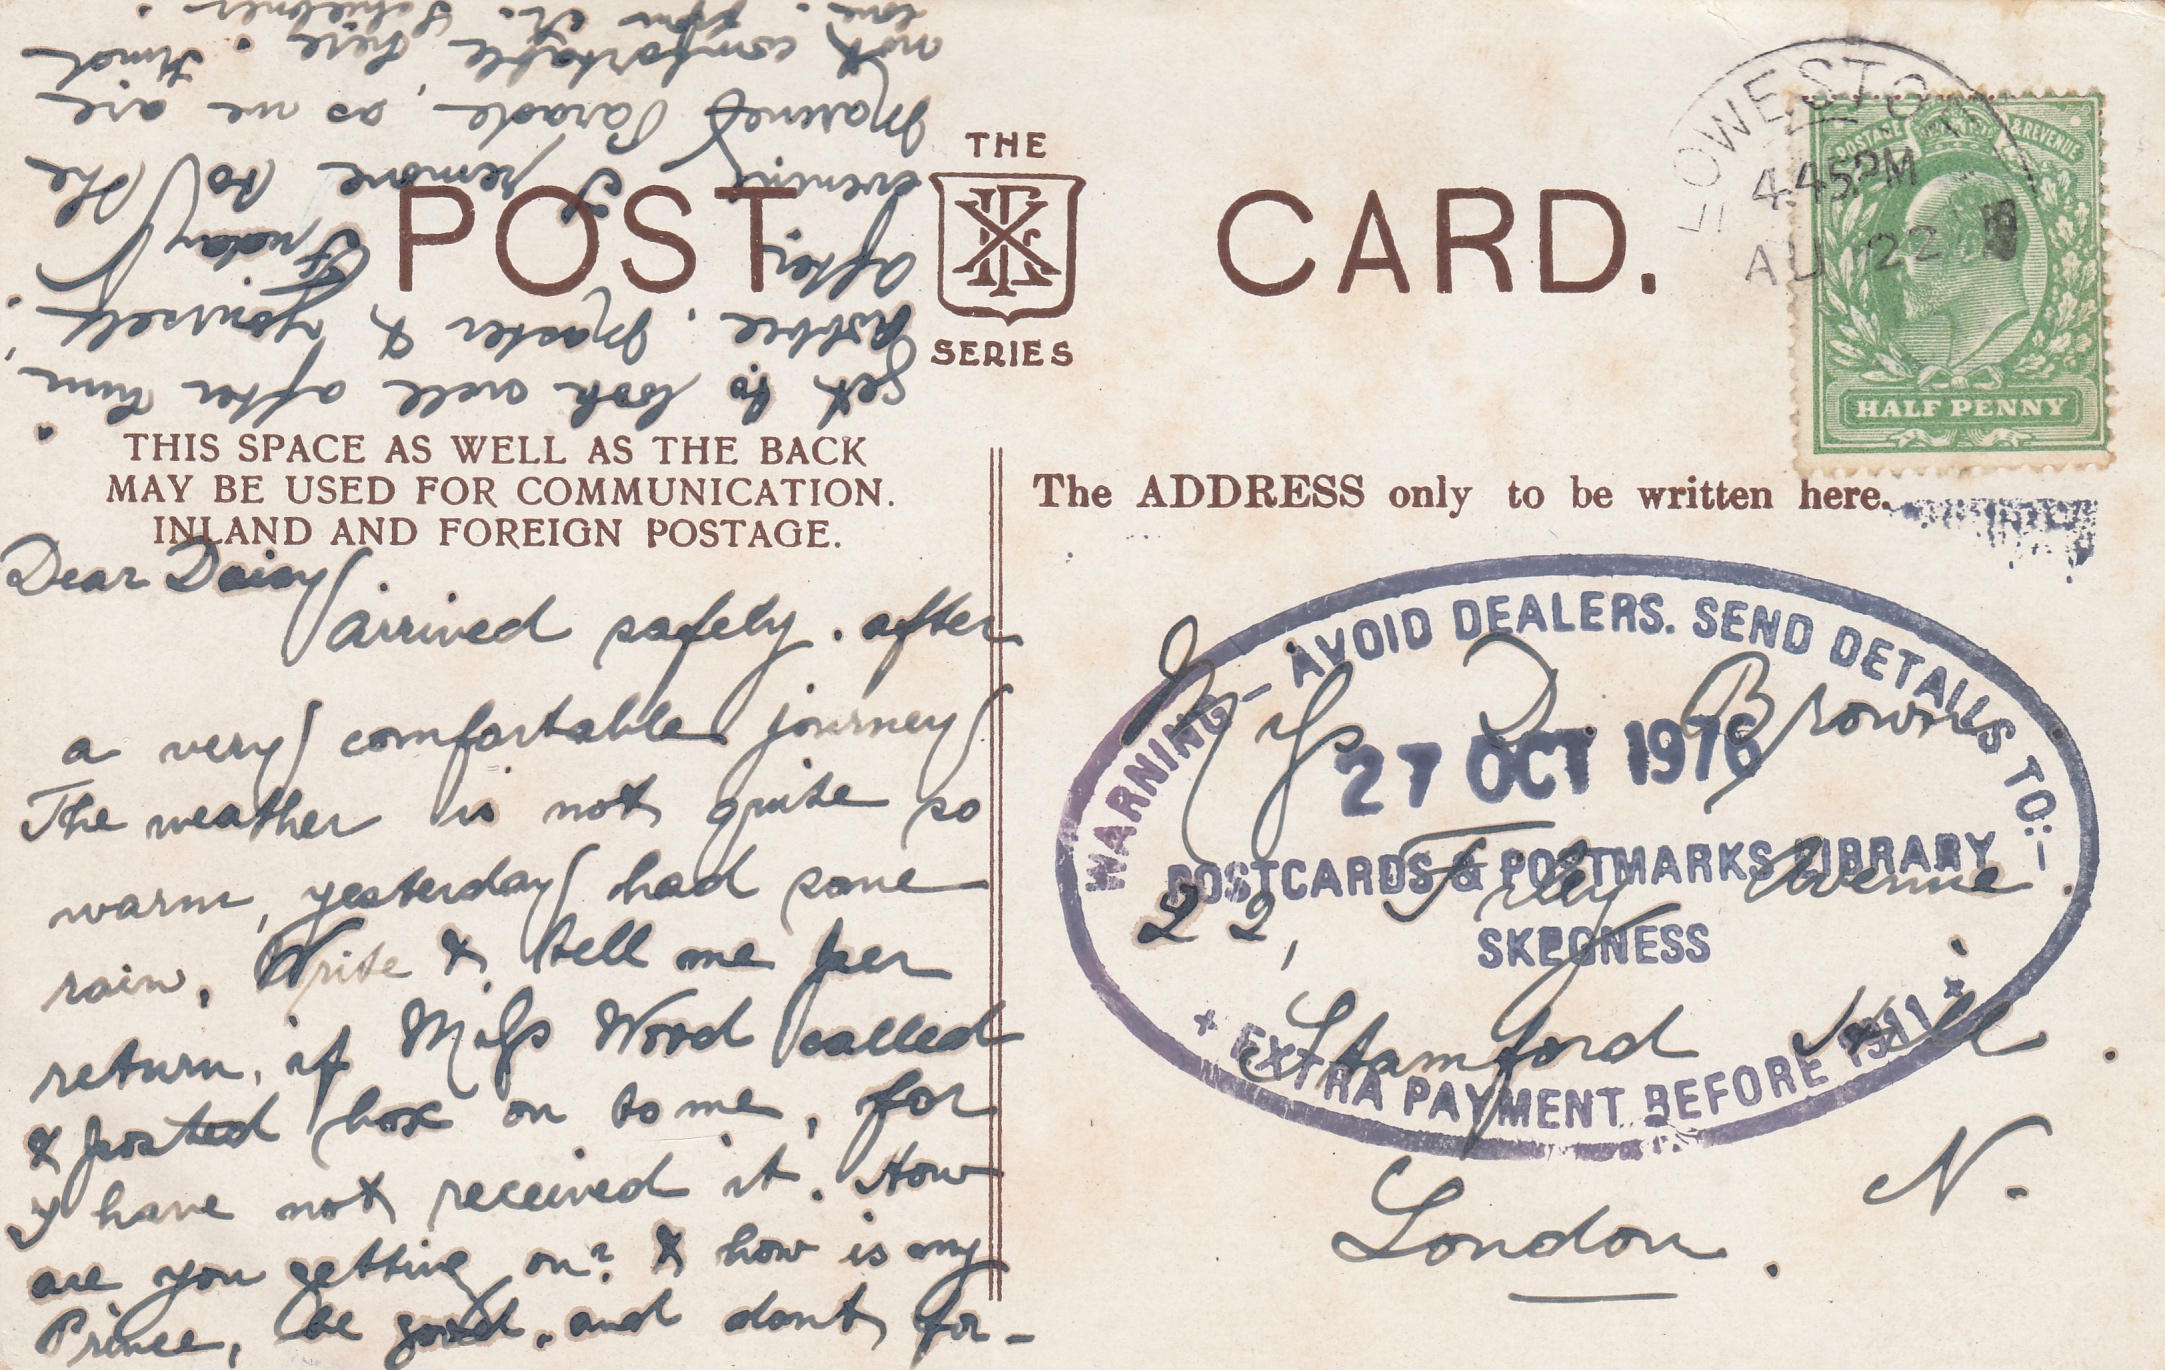 THE
POST CARD.
SERIES
THIS SPACE AS WELL AS THE BACK
MAY BE USED FOR COMMUNICATION.
INLAND AND FOREIGN POSTAGE.
The ADDRESS only to be written here.
LOWESTOFT
4.45PM
AU 22
POSTAGE & REVENUE
HALF PENNY
Dear Daisy
arrived safely. after
a very comfortable journey
The weather is not quite so
warm, yesterday had some
rain. Write & tell me per
return, if Miss Wood called
& posted box on to me, for
I have not received it. How
are you getting on? & how is my
Prince, be good, and dont for-
get to look well after him.
Master & yourself.
after Friday
evening I remove to the
Marine Parade, as we are
not comfortable, here. Kind
love. from
Miss D. Brown
22, Filey Avenue.
Stamford Hill.
London. N.
WARNING – AVOID DEALERS. SEND DETAILS TO:–
27 OCT 1976
POSTCARDS & POSTMARKS LIBRARY
SKEGNESS
+ EXTRA PAYMENT BEFORE 1911 +